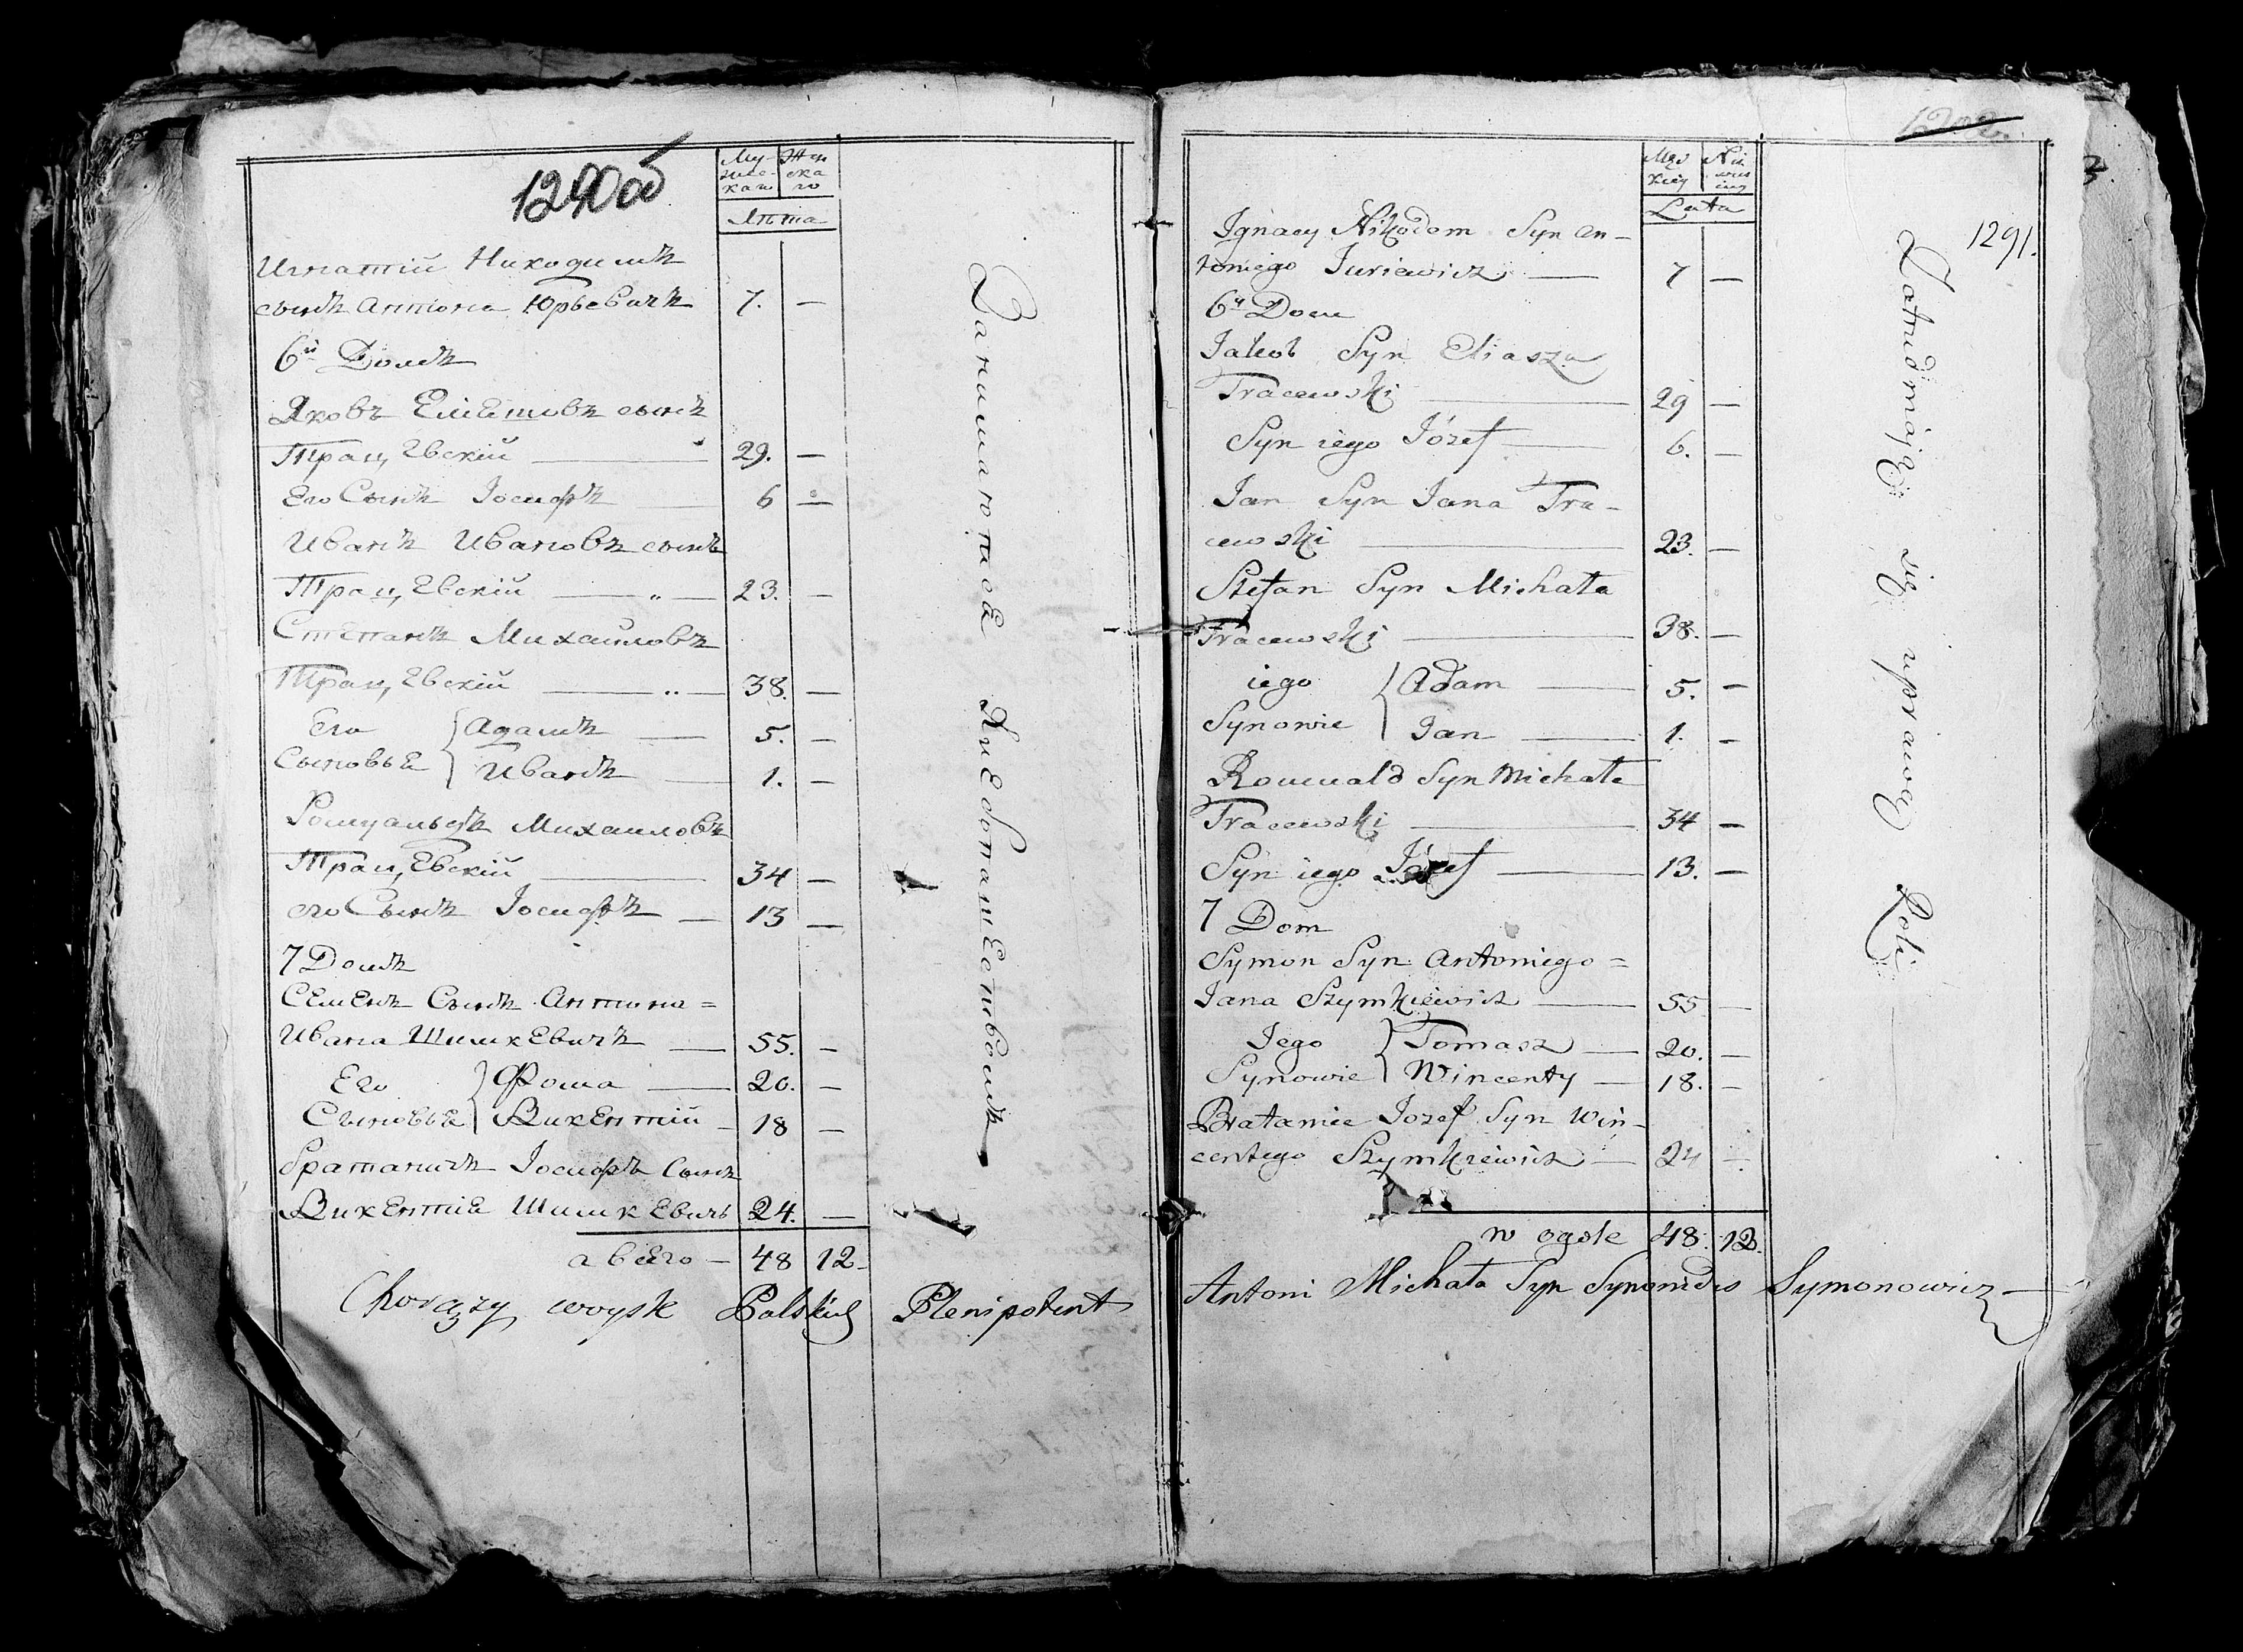 1290об
Му-
жеска
го
Жен
ска
го
Лѣта
Игнатій Никодимъ
сынъ Антона Юрьевичъ 7. —
6й Домъ
Яковъ Еліешовъ сынъ
Трацевскій — 29. —
Его Сынъ Іосифъ — 6 —
Иванъ Ивановъ сынъ
Трацевскій — 23. —
Степанъ Михайловъ
Трацевскій — 38. —
Его { Адамъ — 5. —
Сыновья { Иванъ — 1. —
Ромуальдъ Михайловъ
Трацевскій — 34 —
его Сынъ Іосифъ — 13 —
7 Домъ
Семенъ Сынъ Антона=
Ивана Шимкевичъ — 55. —
Его } Фома — 20. —
Сыновья } Викентій — 18 —
братаничъ Іосифъ Сынъ
Викентія Шимкевичъ 24. —
а всего — 48 12
Занимаются Хлебопашествомъ
Chorąży woysk Polskich Plenipotent
1291.
Męz
kiey
Lata
Ignacy Nikodem Syn An-
toniego Juriewicz — 7 —
6y Dom
Jakob Syn Eliasza
Tracewski — 29 —
Syn iego Józef — 6. —
Jan Syn Jana Tra-
cewski — 23. —
Stefan Syn Michała
Tracewski — 38. —
iego { Adam — 5. —
Synowie { Jan — 1. —
Romuald Syn Michała
Tracewski — 34 —
Syn iego Józef — 13. —
7 Dom
Symon Syn Antoniego=
Jana Szymkiewicz — 55 —
Jego } Tomasz — 20. —
Synowie } Wincenty — 18. —
Bratanie Jozef Syn Win-
centego Szymkiewicz — 24 —
w ogole 48. 12.
Zatrudniają się uprawą Roli
Antoni Michała Syn Symonowicz —